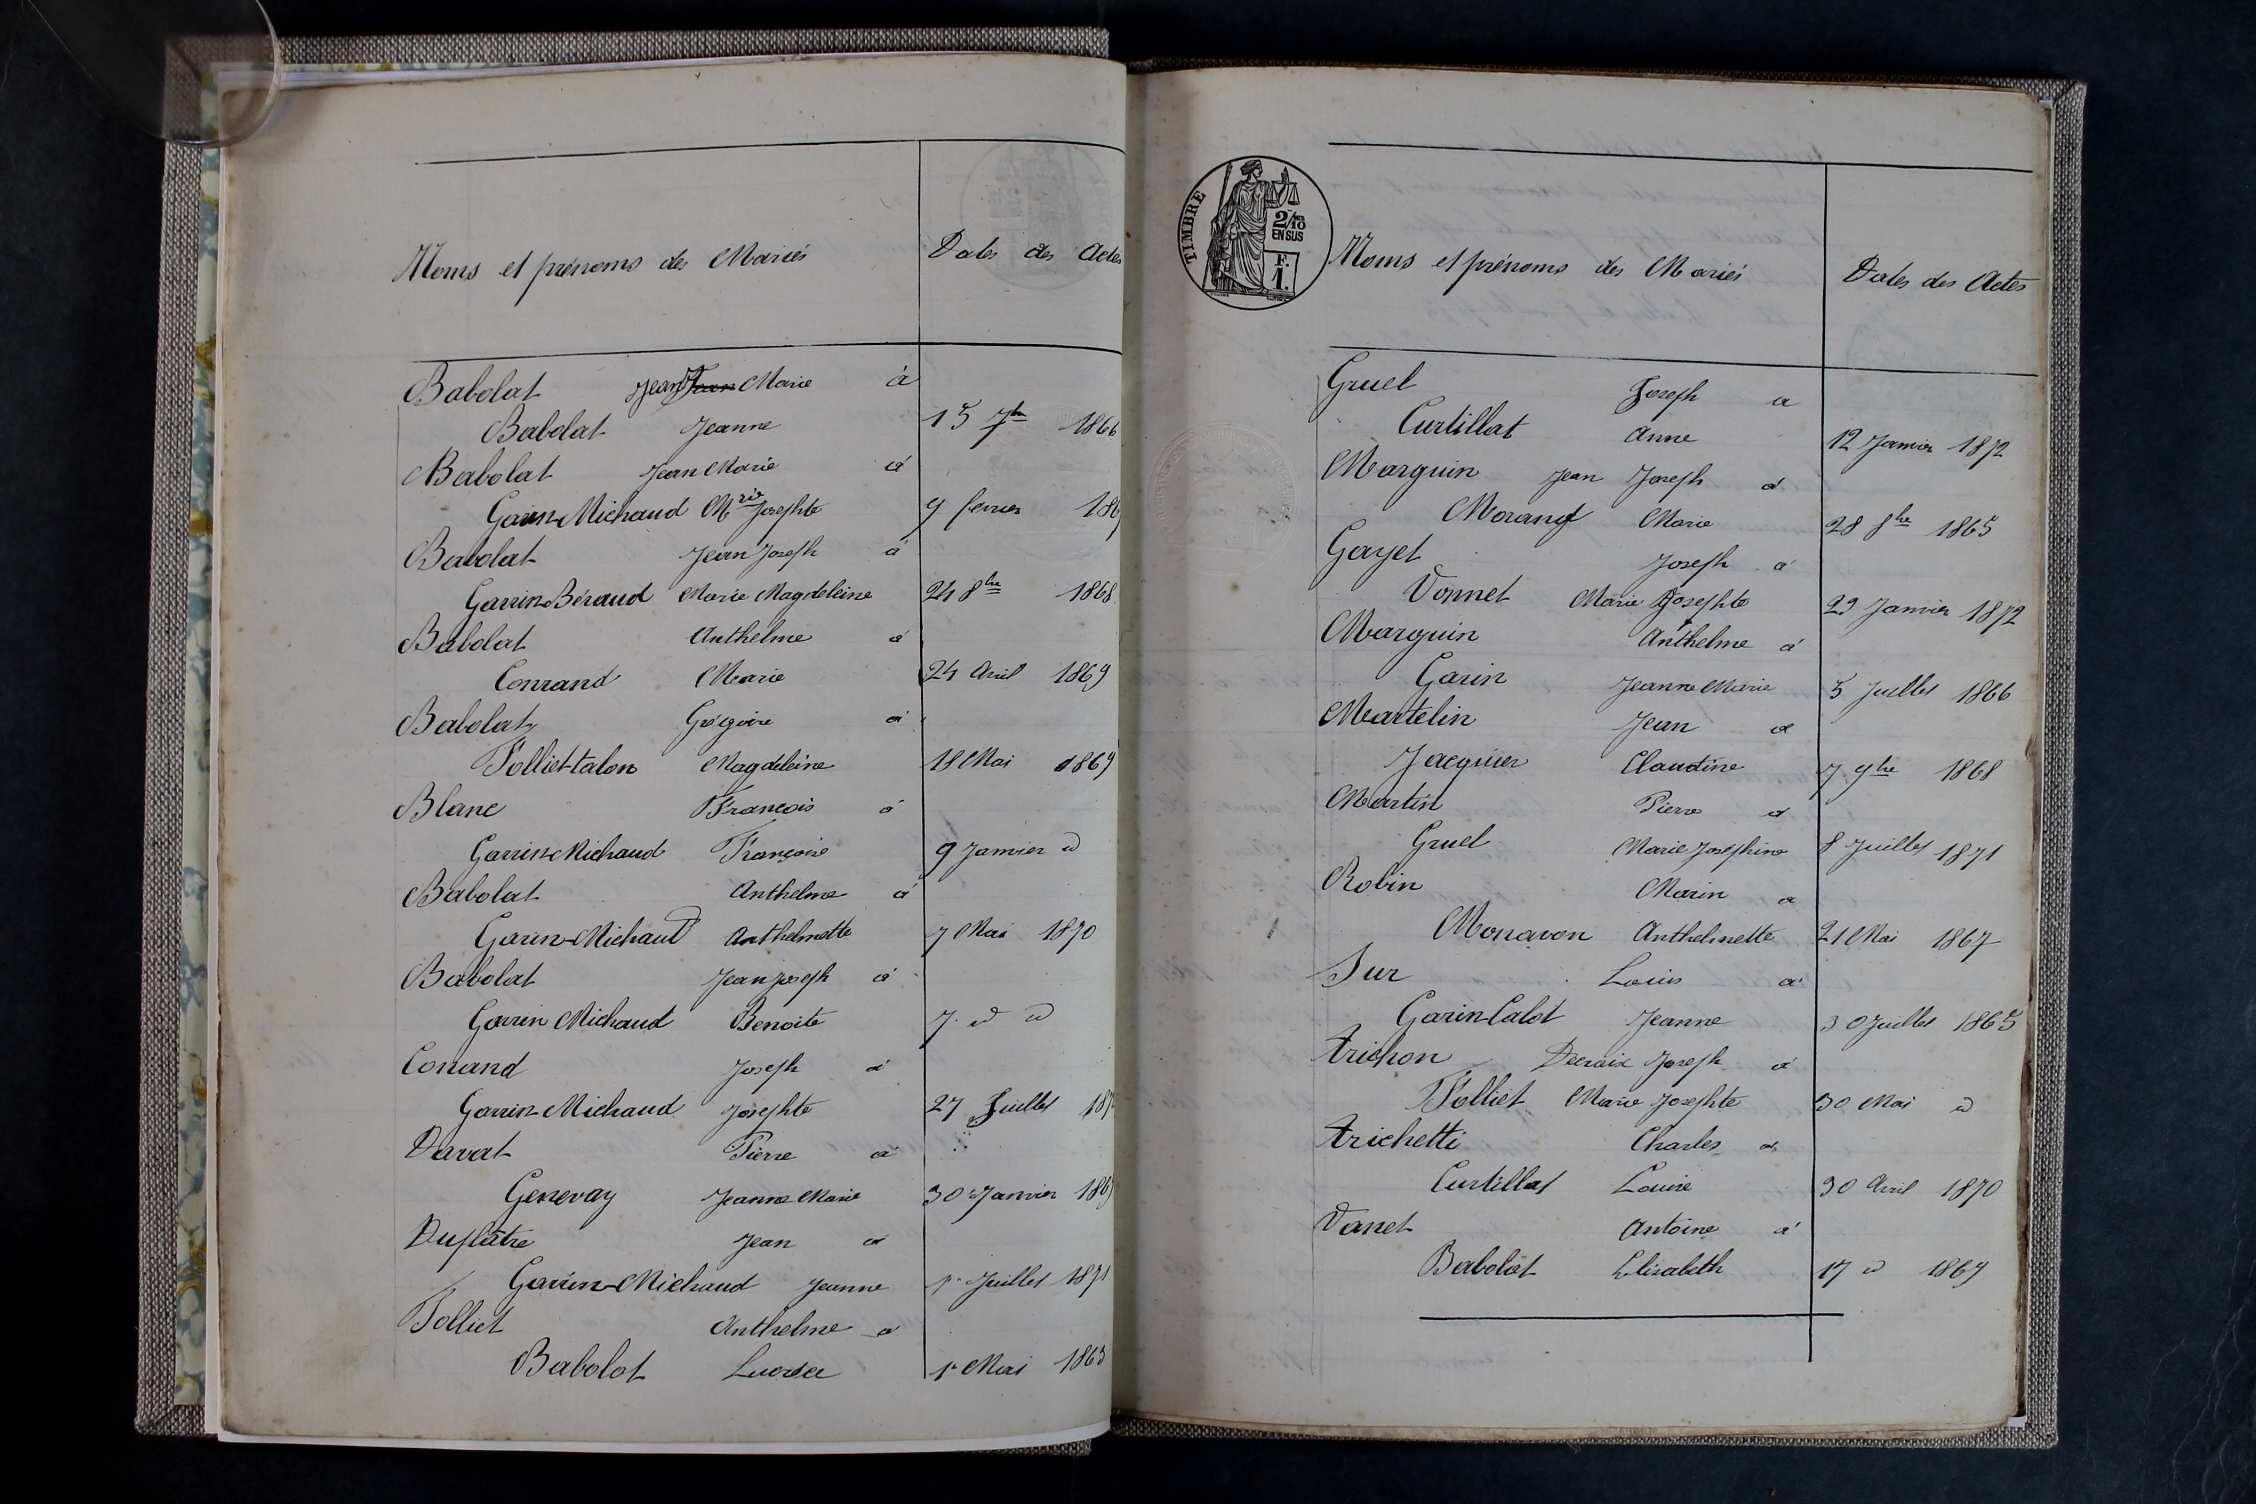 Noms et prénoms des Mariés Dates des Actes
Babolat Jean Marie à
Babolat Jeanne 15 7bre 1866
Babolat Jean Marie à
Garin-Michaud Mrie Josephte 9 fevrier
Babolat Jean Joseph à
Garrin-Béraud Marie Magdeleine 24 8bre 1868
Babolat Anthelme à
Conrand Marie 24 Avril 1869
Babolat Grégoire à
Folliet-talon Magdeleine 18 Mai 1869
Blanc Francois à
Garrin-Michaud Françoise 9 Janvier d
Babolat Anthelme à
Garin-Michaud Anthelmette 7 Mai 1870
Babolat Jean Joseph à
Garrin Michaud Benoite 7 d d
Conand Joseph à
Garrin-Michaud Josephte 27 Juillet
Davat Pierre à
Genevay Jeanne Marie 30 Janvier
Duplâtre Jean à
Garrin-Michaud Jeanne 1r Juillet 1871
Folliet Anthelme à
Babolat 1r Mai 1863
TIMBRE
2/10 EN SUS
F. 1.
Noms et prénoms des Mariés Dates des Actes
Gruel Joseph à
Curtillat Anne 12 Janvier 1872
Marguin Jean Joseph à
Morand Marie 28 8bre 1865
Gayet Joseph à
Vonnet Marie Josephte 29 Janvier 1872
Marguin Anthelme à
Garin Jeanne Marie 5 Juillet 1866
Martelin Jean à
Jacquier Claudine 7 9bre 1868
Martin Pierre à
Gruel Marie Josephine 8 Juillet 1871
Robin Marin à
Monavon Anthelmette 21 Mai 1867
Sur Louis à
Garin-Calot Jeanne 30 Juillet 1865
Trichon Decroix Joseph à
Folliet Marie Josephte 30 Mai d
Trichetti Charles à
Curtillat Louise 30 Avril 1870
Vanet Antoine à
Babolat Elisabeth 17 d 1869